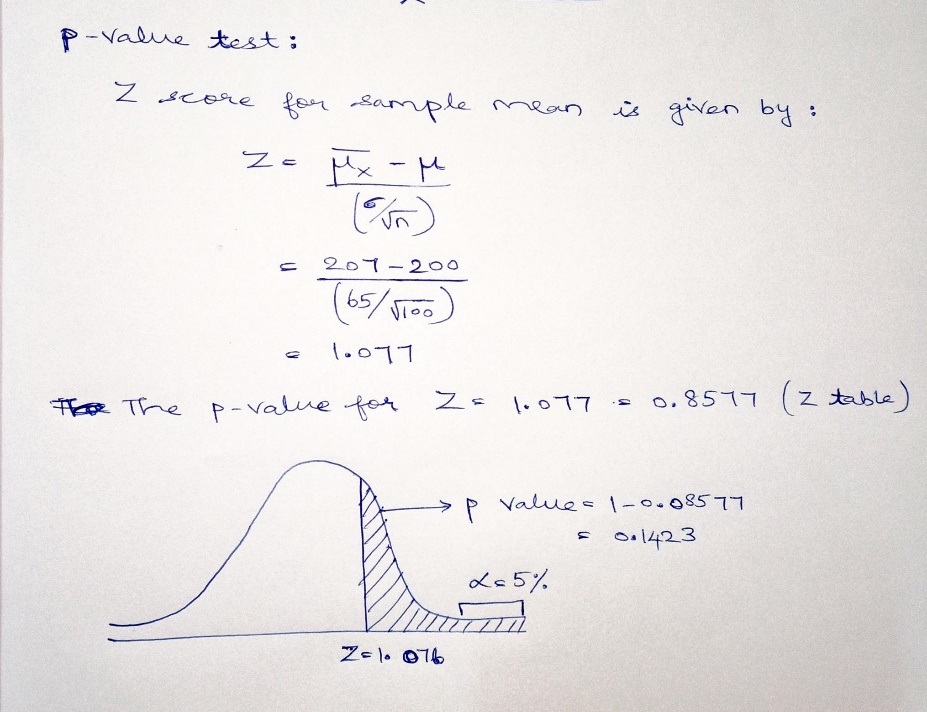 p-value test:
Z score for sample mean is given by:
Z = (μ̅ₓ - μ) / (σ/√n)
= (207 - 200) / (65/√100)
= 1.077
The p-value for Z = 1.077 = 0.8577 (Z table)
p value = 1-0.08577
= 0.1423
α = 5%
Z = 1.076